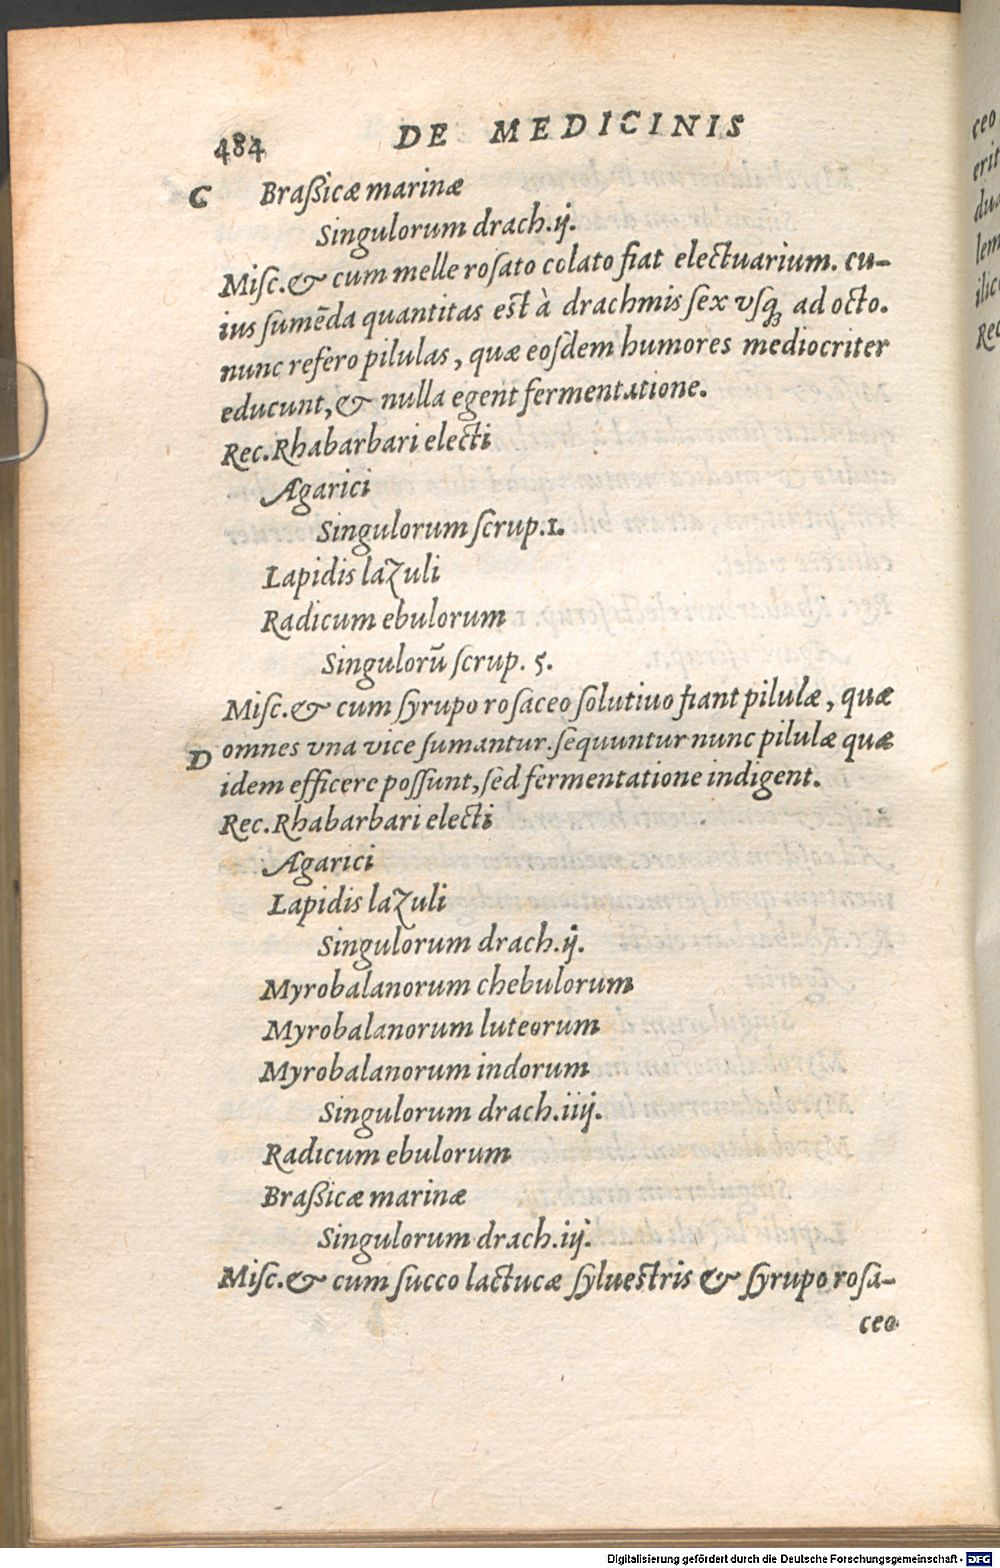 484 DE MEDICINIS
C Braßicæ marinæ
Singulorum drach.ij.
Misc.& cum melle rosato colato fiat electuarium. cu-
ius sumēda quantitas est à drachmis sex vsq; ad octo.
nunc refero pilulas, quæ eosdem humores mediocriter
educunt, & nulla egent fermentatione.
Rec. Rhabarbari electi
Agarici
Singulorum scrup.1.
Lapidis lazuli
Radicum ebulorum
Singulorū scrup. 5.
Misc.& cum syrupo rosaceo solutiuo fiant pilulæ, quæ
D omnes vna vice sumantur. sequuntur nunc pilulæ quæ
idem efficere possunt, sed fermentatione indigent.
Rec. Rhabarbari electi
Agarici
Lapidis lazuli
Singulorum drach.ij.
Myrobalanorum chebulorum
Myrobalanorum luteorum
Myrobalanorum indorum
Singulorum drach.iiij.
Radicum ebulorum
Braßicæ marinæ
Singulorum drach.iij.
Misc.& cum succo lactucæ syluestris & syrupo rosa-
ceo
ceo
erit
lem
Rec
Digitalisierung gefördert durch die Deutsche Forschungsgemeinschaft - DFG